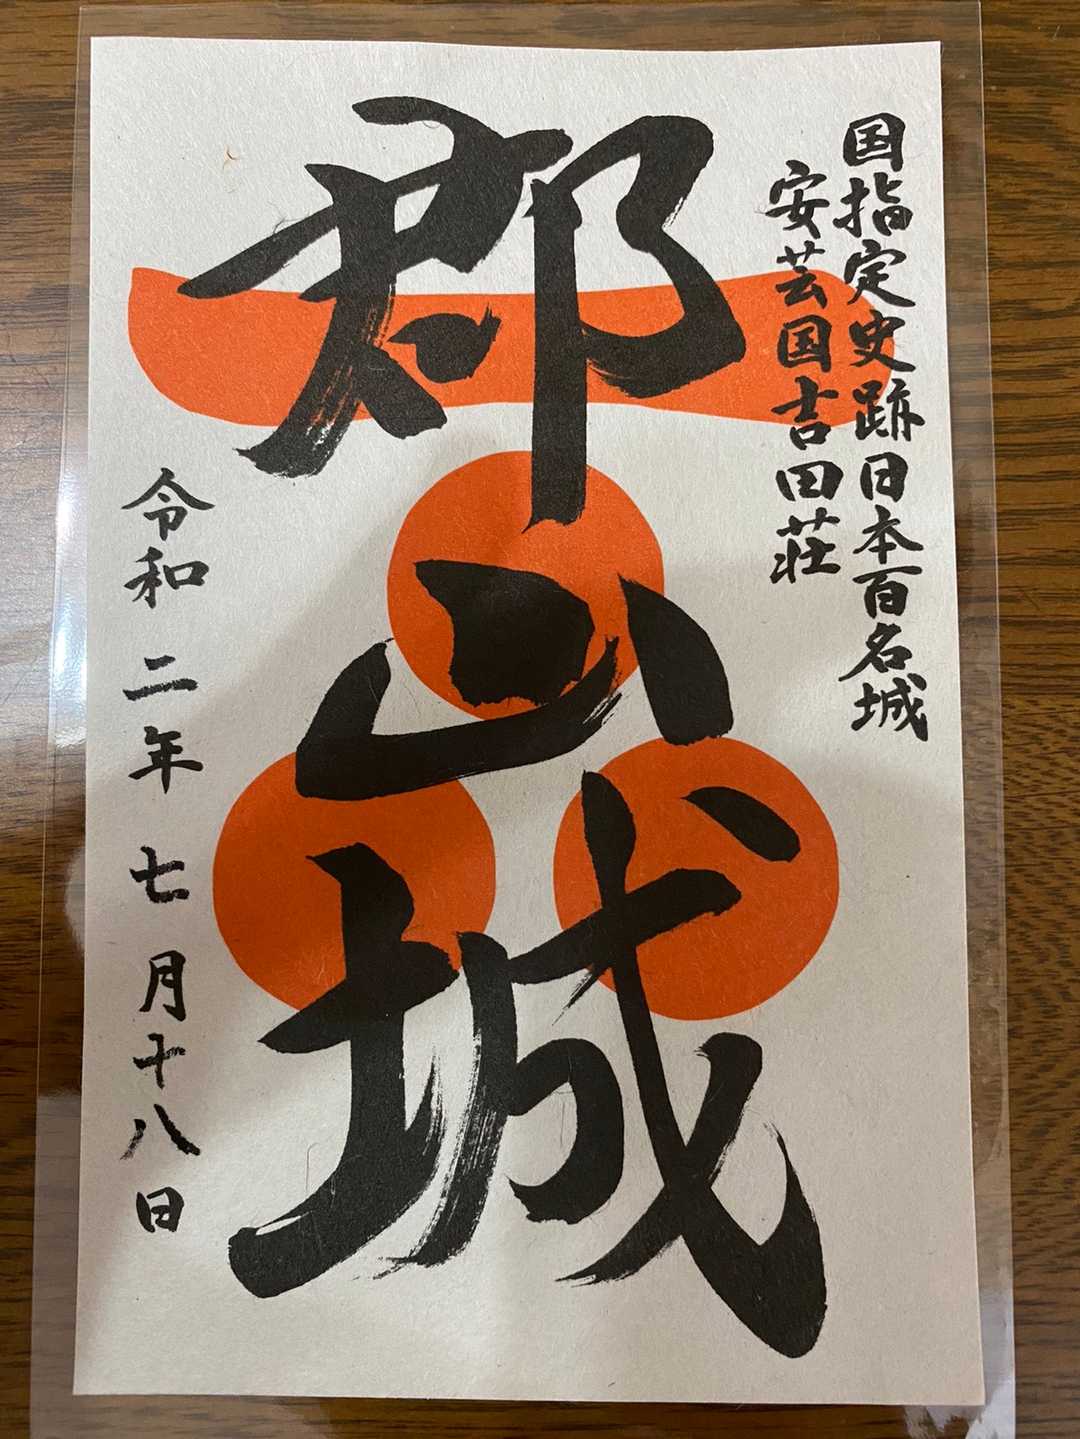 国指定史跡日本百名城
安芸国吉田荘
郡山城
令和二年七月十八日